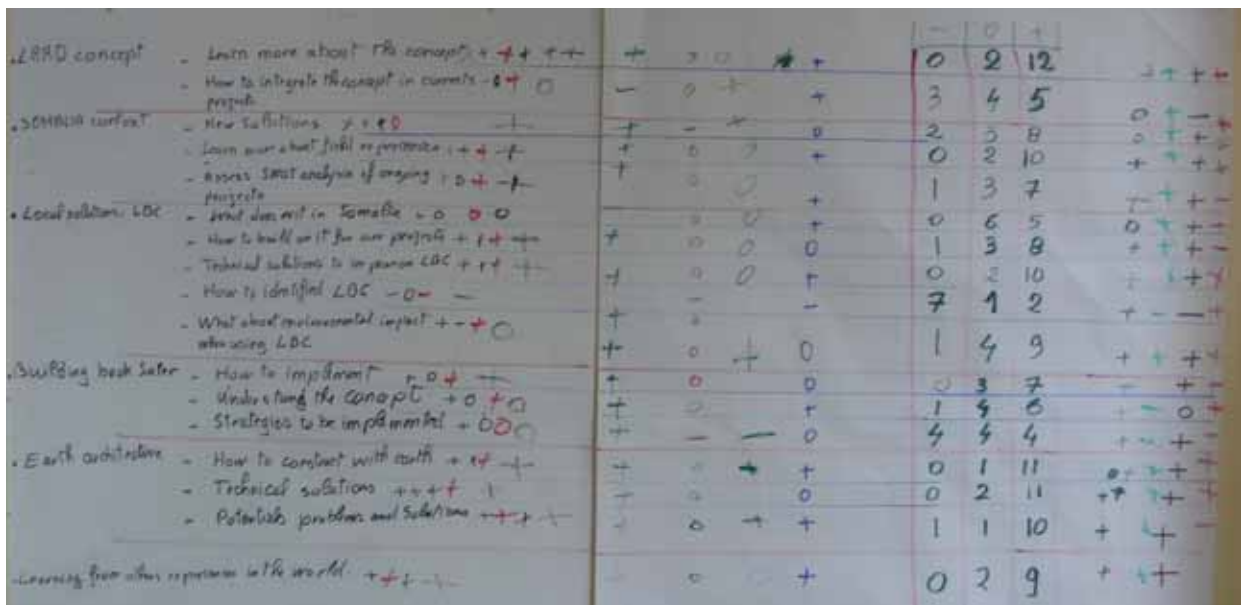 - 0 +
. LRRD concept - Learn more about the concept + + + + + + 0 0 + + 0 2 12 + + +
- How to integrate the concept in currents - 0 + 0 - 0 + + 3 4 5
projects 0 + -
. SOMALIA context - New solutions + + + 0 + + - + 0 2 3 8 0 + +
- Learn more about field experiences + + + + + 0 0 + 0 2 10 + + +
- Assess SWOT analysis of ongoing + 0 + + + 0 0 + 1 3 7 + + -
projects
. Local solutions LBC - What does exist in Somalia - 0 0 0 - 0 0 + 0 6 5 0 + + -
- How to build on it for our projects + + + + + 0 0 0 1 3 8 + + + -
- Technical solutions to improve LBC + + + + + 0 0 + 0 2 10 + + + +
- How to identified LBC - 0 - - - - 7 1 2 + - - +
- What about environmental impact + - + 0 + 0 + 0 1 4 9 + + + +
when using LBC
. Building back safer - How to implement + 0 + + + 0 0 0 3 7 + -
- Understand the concept + 0 + 0 + 0 + 1 4 6 + - 0 +
- Strategies to be implemented + 0 0 0 + - - 0 4 4 4 + - + -
. Earth architecture - How to construct with earth + + + + + 0 + + 0 1 11 0 + + + +
- Technical solutions + + + + + 0 0 0 2 11 + + + + +
- Potentials problems and solutions + + + + + 0 + + 1 1 10 + + + -
- Learning from others experiences in the world. + + + + + 0 0 + 0 2 9 + + +